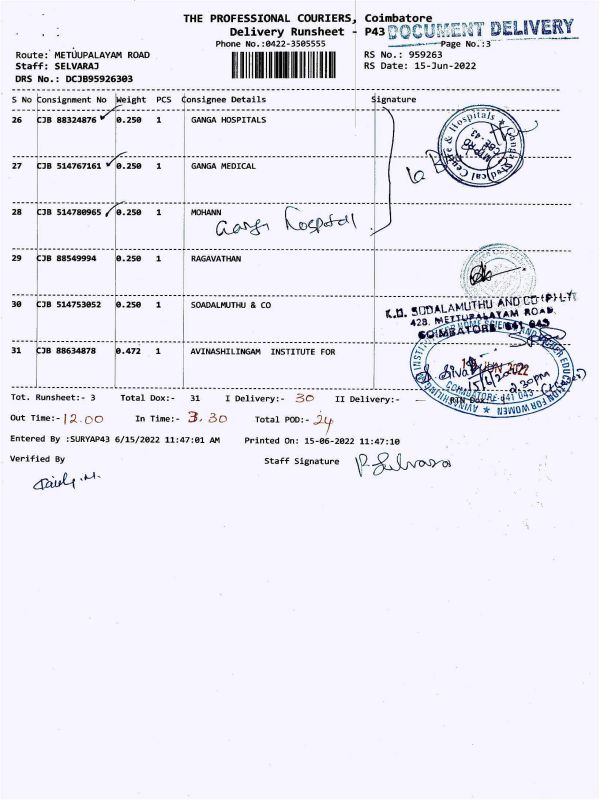 THE PROFESSIONAL COURIERS, Coimbatore
Delivery Runsheet - P43 DOCUMENT DELIVERY
Phone No.:0422-3505555 Page No.:3
Route: METUUPALAYAM ROAD RS No.: 959263
Staff: SELVARAJ RS Date: 15-Jun-2022
DRS No.: DCJB95926303
S No Consignment No Weight PCS Consignee Details Signature
26 CJB 88324876 0.250 1 GANGA HOSPITALS
Ganga Medical Centre & Hospitals
27 CJB 514767161 0.250 1 GANGA MEDICAL
28 CJB 514780965 0.250 1 MOHANN
Ganga Hospital
29 CJB 88549994 0.250 1 RAGAVATHAN
30 CJB 514753052 0.250 1 SOADALMUTHU & CO
K.O. SUDALAMUTHU AND CO (P) LT
428, METTUPALAYAM ROAD,
COIMBATORE 641 043
31 CJB 88634878 0.472 1 AVINASHILINGAM INSTITUTE FOR
JUN 2022
15/6/2022
2.30pm
COIMBATORE-641 043
Tot. Runsheet:- 3 Total Dox:- 31 I Delivery:- 30 II Delivery:- - RTN Dox:-
Out Time:- 12.00 In Time:- 3.30 Total POD:- 24
Entered By :SURYAP43 6/15/2022 11:47:01 AM Printed On: 15-06-2022 11:47:10
Verified By Staff Signature